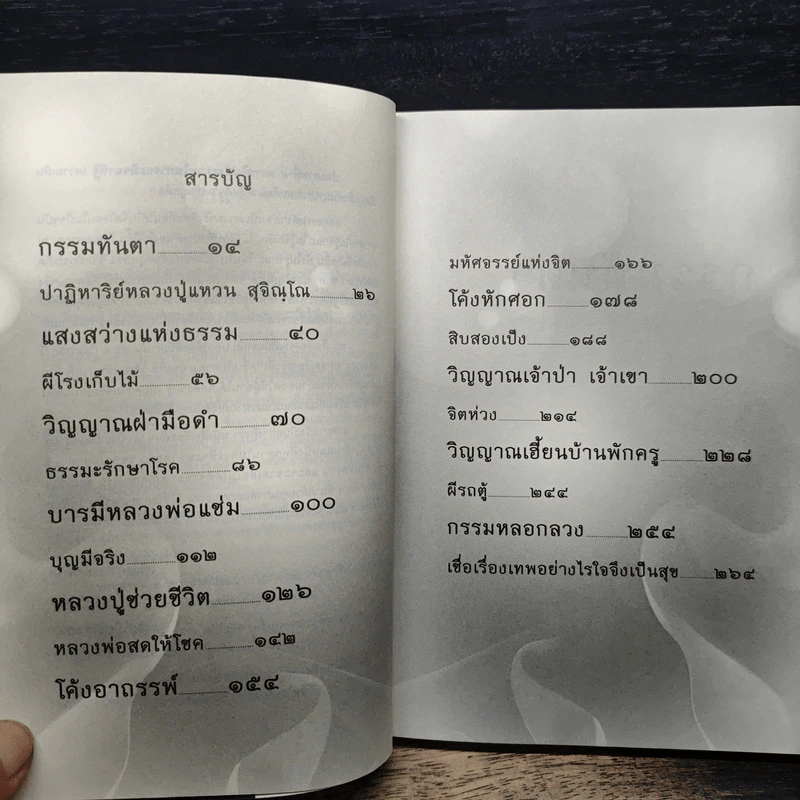 สารบัญ
กรรมทันตา..........๑๔
ปาฏิหาริย์หลวงปู่แหวน สุจิณฺโณ..........๒๖
แสงสว่างแห่งธรรม..........๔๐
ผีโรงเก็บไม้..........๕๖
วิญญาณฝ่ามือดำ..........๗๐
ธรรมะรักษาโรค..........๘๖
บารมีหลวงพ่อแช่ม..........๑๐๐
บุญมีจริง..........๑๑๒
หลวงปู่ช่วยชีวิต..........๑๒๖
หลวงพ่อสดให้โชค..........๑๔๒
โค้งอาถรรพ์..........๑๕๔
มหัศจรรย์แห่งจิต..........๑๖๖
โค้งหักศอก..........๑๗๘
สิบสองเป็ง..........๑๘๘
วิญญาณเจ้าป่า เจ้าเขา..........๒๐๐
จิตห่วง..........๒๑๔
วิญญาณเฮี้ยนบ้านพักครู..........๒๒๘
ผีรถตู้..........๒๔๔
กรรมหลอกลวง..........๒๕๔
เชื่อเรื่องเทพอย่างไรใจจึงเป็นสุข..........๒๖๔